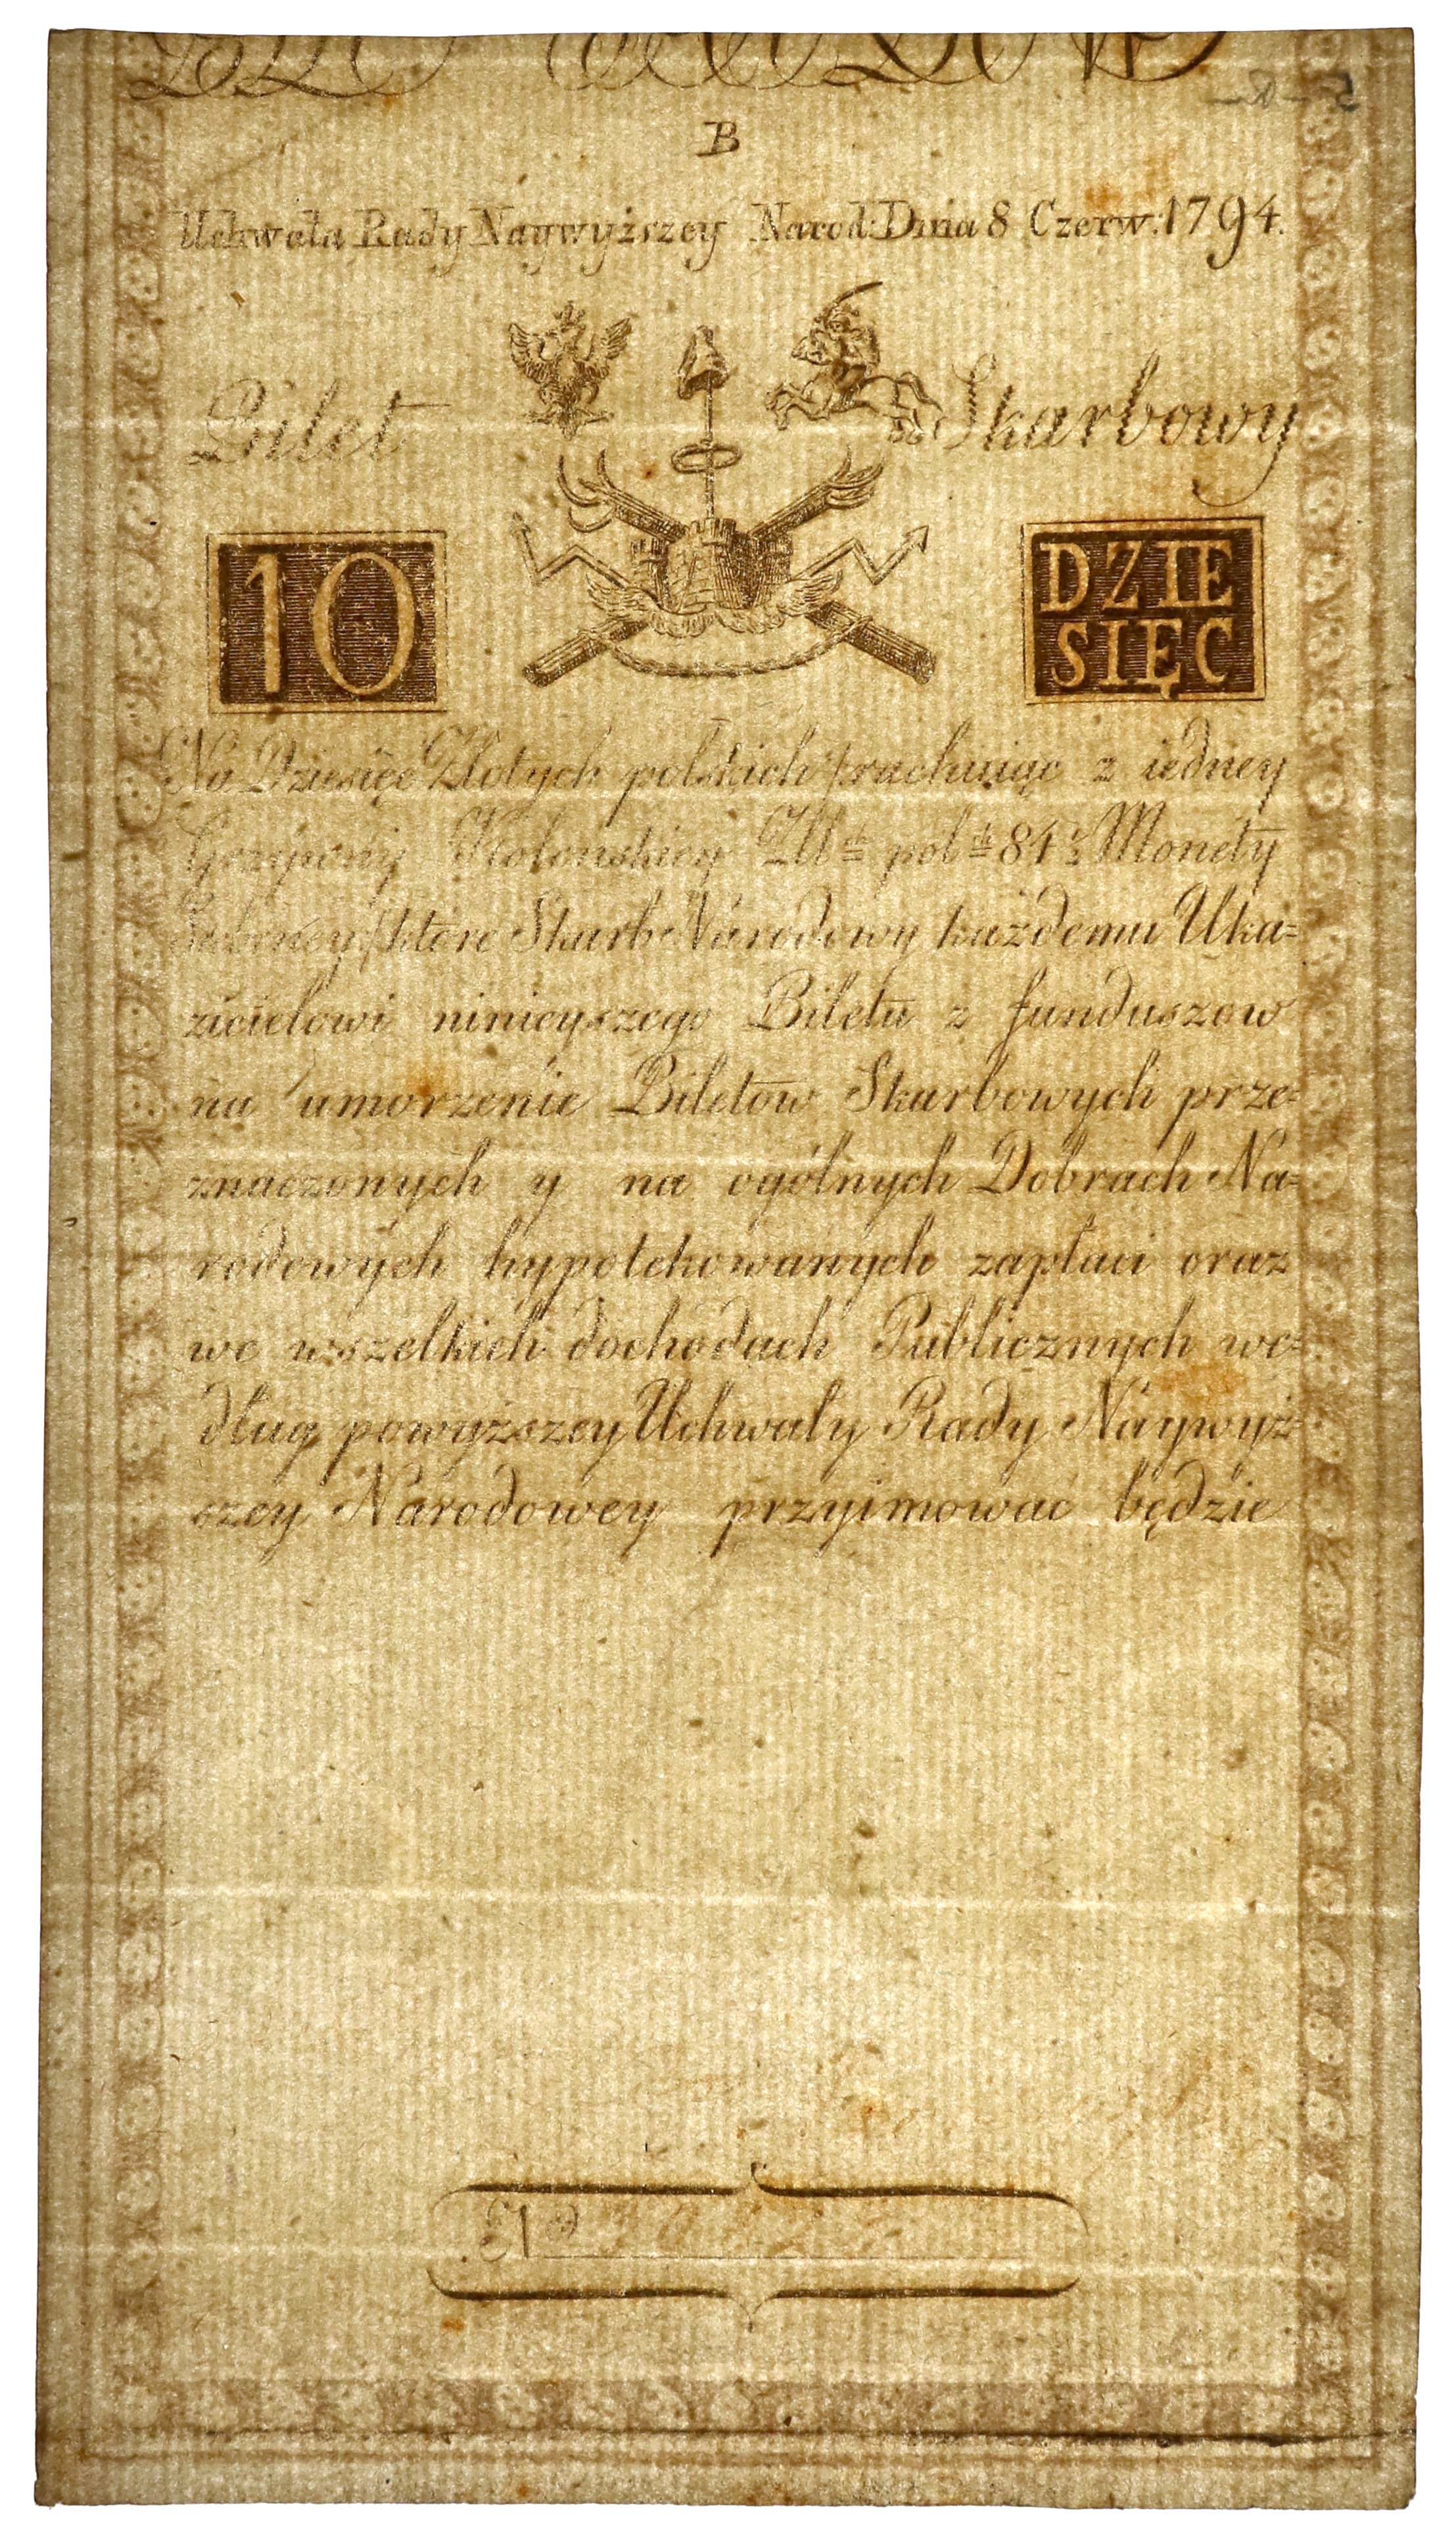 B
Uchwała Rady Naywyższey Narod: Dnia 8 Czerw: 1794.
Bilet Skarbowy
10
DZIE
SIĘC
Na Dziesięc Złotych polskich /rachuiąc z iedney
Grzywny Kolonskiey Zll ch pol ch 84 1/2 Monety
Srebrney/ ktore Skarb Narodowy każdemu Uka=
zicielowi ninieyszego Biletu z funduszow
na umorzenie Biletow Skarbowych prze=
znaczonych y na ogólnych Dobrach Na=
rodowych hypotekowanych zapłaci oraz
we wszelkich dochodach Publicznych we=
dług powyższey Uchwały Rady Naywyż=
szey Narodowey przyimować będzie